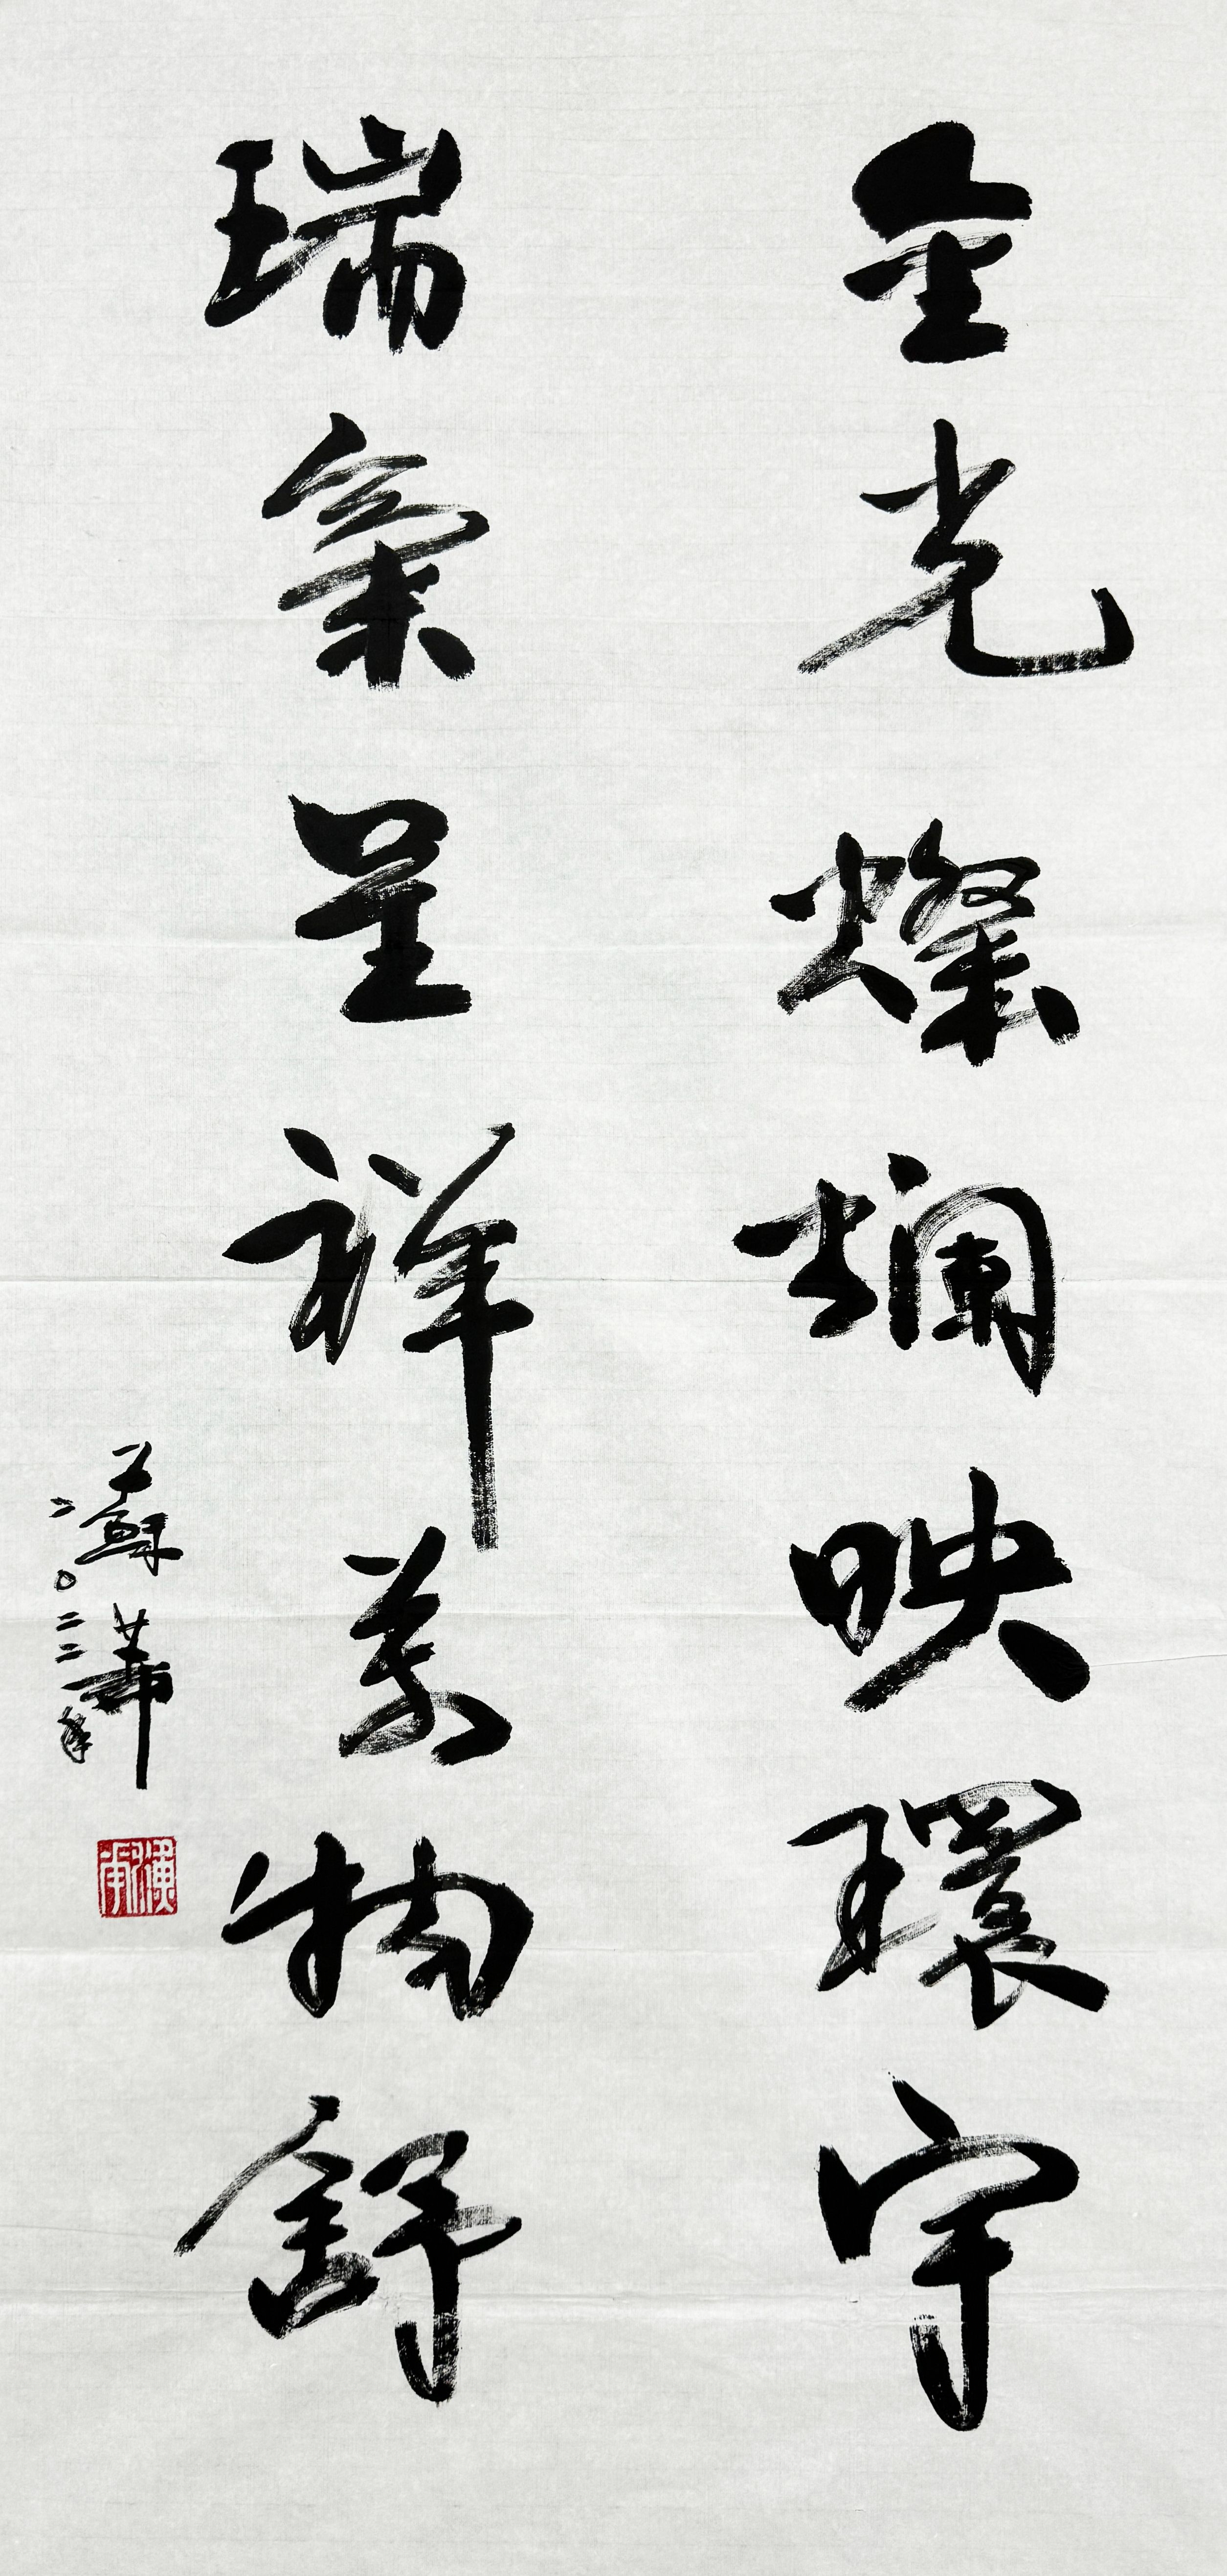 金光燦爛映環宇
瑞氣呈祥萬物舒
蘇華
二〇二二年